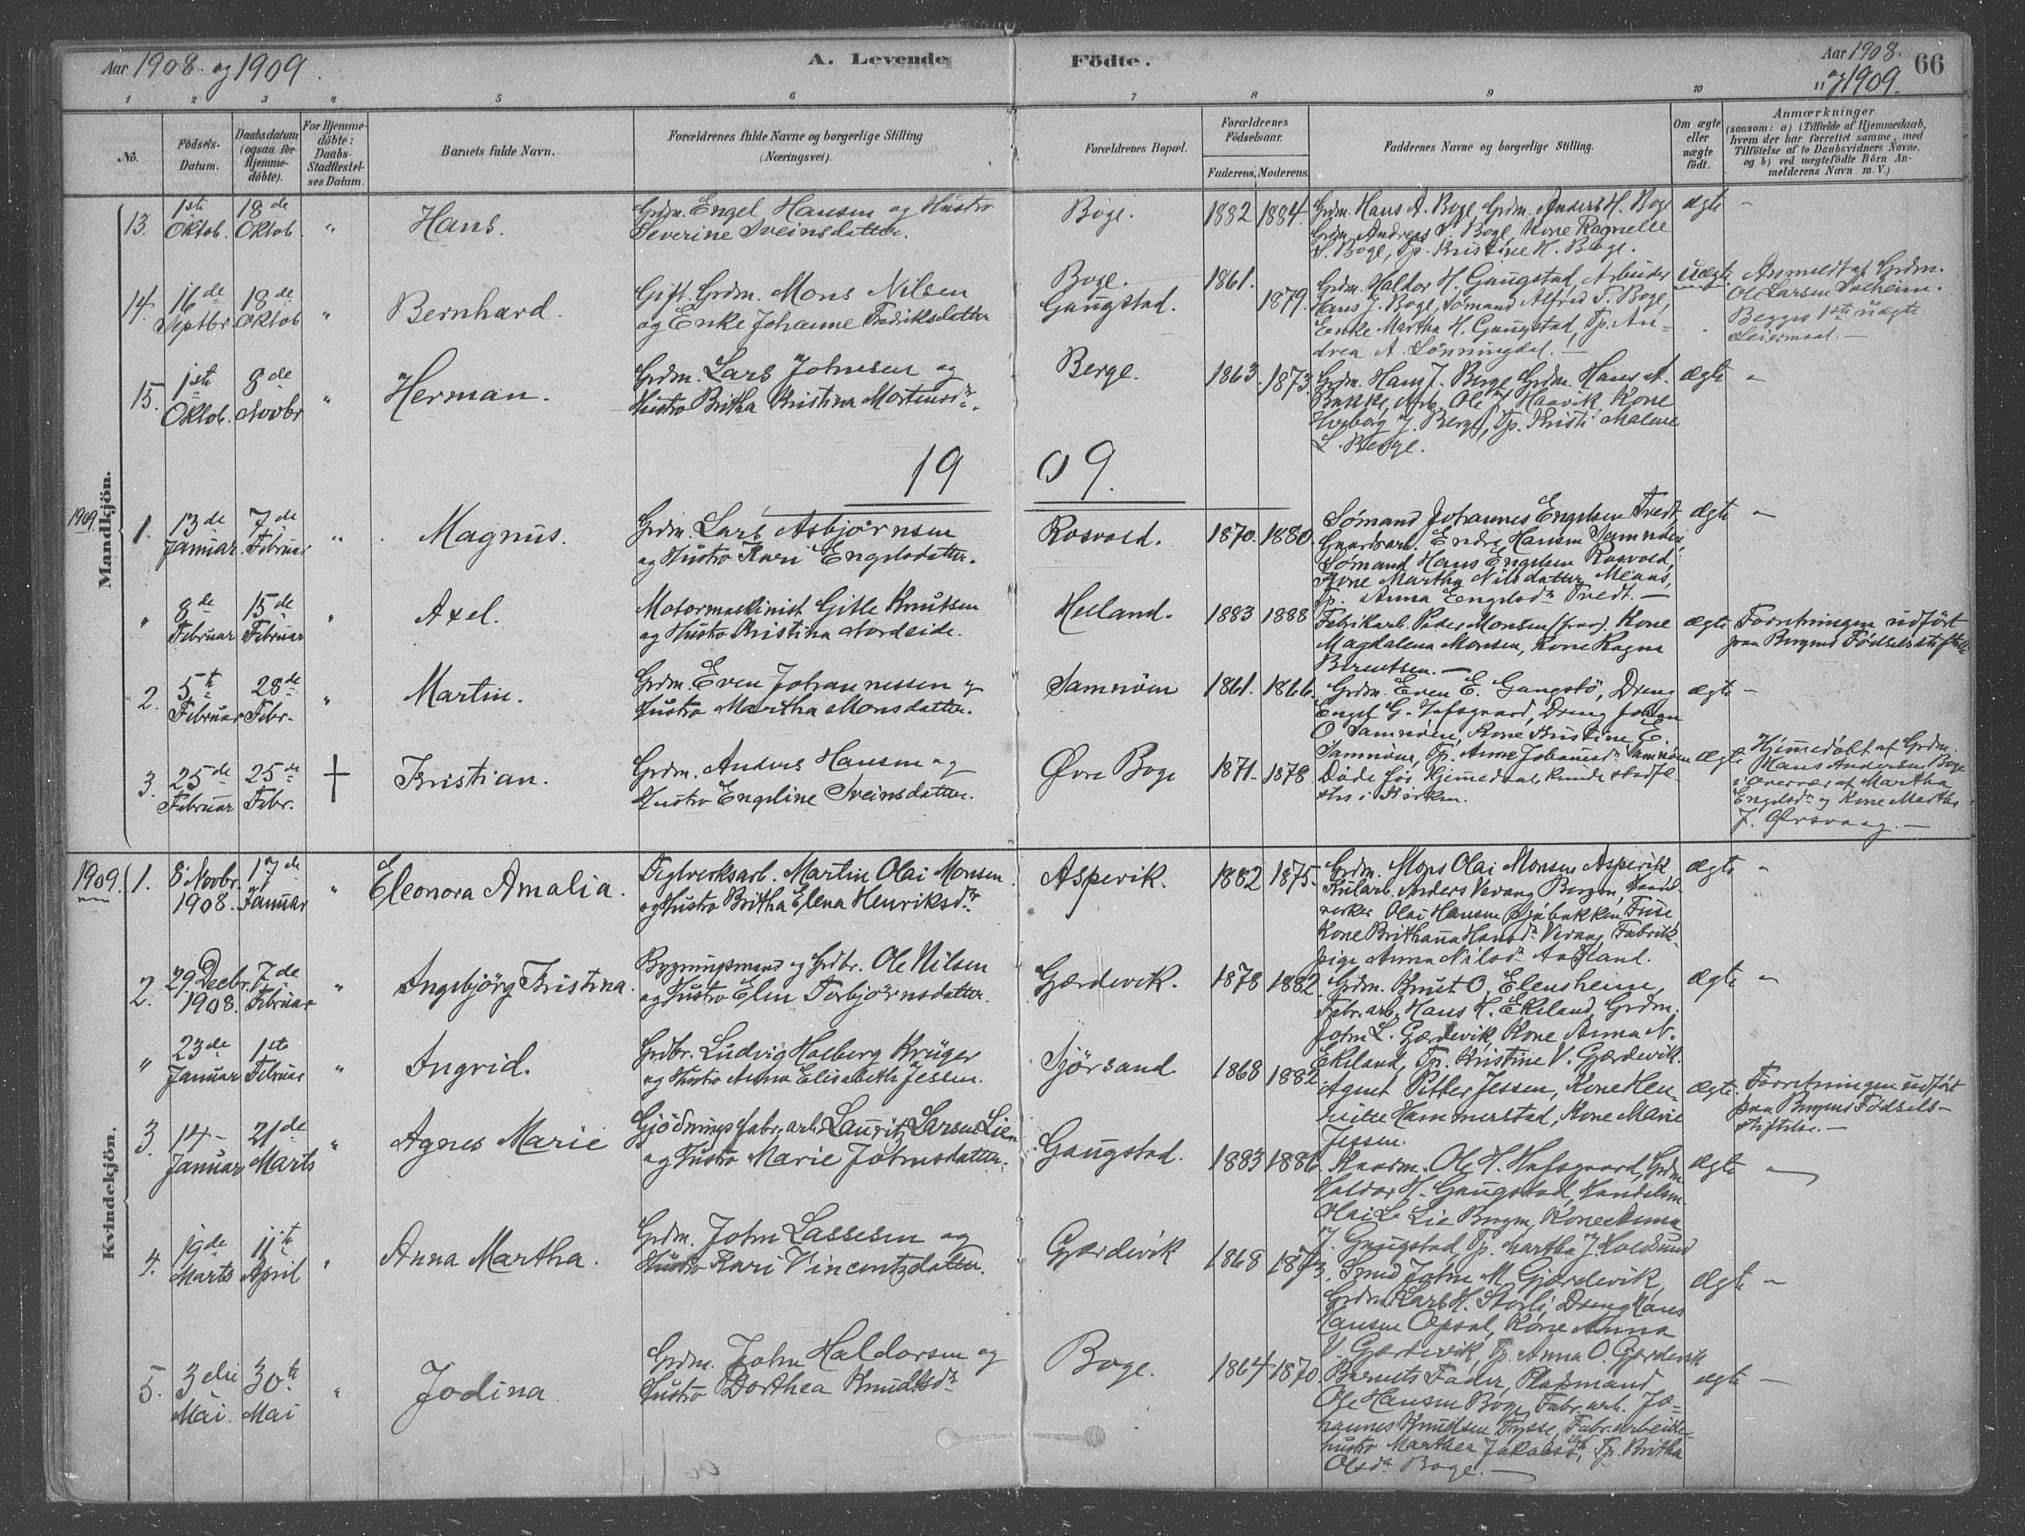 Aar 1908 og 1909.
A. Levende Födte.
Aar 1908 og 1909.
66
1 2 3 4 5 6 7 8 9 10 11
No.
Födsels-Datum.
Daabsdatum (ogsaa for Hjemme-döbte).
For Hjemme-döbte: Daabs-Stadfæstel-ses Datum.
Barnets fulde Navn.
Forældrenes fulde Navne og borgerlige Stilling (Næringsvei).
Forældrenes Bopæl.
Forældrenes Födselsaar.
Faderens. Moderens.
Faddernes Navne og borgerlige Stilling.
Om ægte eller uægte födt.
Anmærkninger
(saasom: a) i Tilfælde af Hjemmedaab, hvem der har forrettet samme, med Tilföielse af to Daabsvidners Navne, og b) ved uægtefödte Börn Anmelderens Navn m. V.)
Mandkjön.
13. 1ste Oktob. 18de Oktob. " Hans.
Grdm. Engel Hansen og Hustro
Severine Sveinsdatter.
Boge. 1882 1884.
Grdm. Hans A. Boge, Grdm. Anders H. Boge
Grdm. Andreas S. Boge, Kone Ragnelle
S. Boge, Tp. Kristine H. Boge.
ægte "
14. 16de Septbr. 18de Oktob. " Bernhard.
Gift. Grdm. Mons Nilsen
og Enke Johanne Fredriksdatter
Boge. Gaugstad. 1861. 1879.
Grdm. Haldor H. Gaugstad, Arbeider
Hans J. Boge, Sømand Alfred S. Boge,
Enke Martha H. Gaugstad, Tp. An-
drea A. Lønningdal. —
uægte
Anmeldt af Grdm.
Ole Larsen
Begges 1ste uægte
Leiermaal. —
15. 1ste Oktob. 8de Novbr. " Herman.
Grdm. Lars Johnsen og
Hustro Britha Kristina Mortensdr.
Berge. 1863. 1873.
Grdm. Hans J. Berge, Grdm. Hans A.
Bakke, Arb. Ole J. Haavik, Kone
J. Berge, Tp. Kristi Malene
L. Berge.
ægte "
1909.
1909. 1. 13de Januar 7de Februar " Magnus.
Grdm. Lars Asbjørnsen
og Hustro Kari Engelsdatter.
Rosvold. 1870. 1880.
Sømand Johannes Engelsen Tvedt
Gaardsarb. Endre Hansen Samnøen,
Sømand Hans Engelsen Rosvold,
Kone Martha Nilsdatter
Tp. Anna Engelsdr. Tvedt. —
ægte "
" 8de Februar 15de Februar " Axel.
Motormaskinist Gitle Knutsen
og Hustro Kristina Nordeide.
Heiland. 1883 1888
Fabrikarb. Peder Monsen, Kone
Magdalena Monsen, Kone Ragna
Berentsen. —
ægte
Forretningen udført
paa Bergens Fødselsstiftelse
2. 5te Februar 28de Febr. " Martin.
Grdm. Even Johannessen og
Hustro Martha Monsdatter.
Samnøen 1861. 1866.
Grdm. Even E. Gangstø, Dreng
Engel G. Hafsgaard, Dreng Johan
O. Samnøen, Kone Kristine E.
Samnøen, Tp. Anne Johannesdr. Samnøen
ægte "
3. 25de Februar 25de Febr. + Kristian.
Grdm. Anders Hansen og
Hustro Engeline Sveinsdatter.
Øvre Boge 1871. 1878.
Døde før Hjemmedaab kunde stadfæ
stes i Kirken.
ægte
Hjemmedøbt af Grdm.
Hans Andersen Boge
i Overvær af Martha
Engelsdr. og Kone Martha
J. Ørsvaag. —
Kvindekjön.
1909. 1. 8. Novbr. 1908. 17de Januar " Eleonora Amalia.
Teglverksarb. Martin Olai Monsen
og Hustro Britha Elena Henriksdr.
Aspevik. 1882 1875.
Grdm. Mons Olai Monsen Aspevik
Kularb. Anders Vevang Bergen, Haand-
verker Olai Hansen Sjøbakken Fuse,
Kone Brithanna Hansdr. Vevang, Fabrik-
pige Anna Nilsdr. Aadland.
ægte "
2. 29 Decbr. 1908. 7de Februar " Ingebjörg Kristina.
Bygningsmand og Grdbr. Ole Nilsen
og Hustro Elin Torbjørnsdatter.
Gjærdevik. 1878 1882.
Grdm. Knut O. Elensheim,
Fabr.arb. Hans H. Ekeland, Grdm.
John L. Gærdevik, Kone Anna N.
Ekeland, Tp. Kristine V. Gærdevik.
ægte "
" 23de Januar 1ste Februar " Ingrid.
Grdbr. Ludvig Holberg Krüger
og Hustro Anna Elisabeth Jessen.
Sjørsand 1868 1882.
Agent Petter Jessen, Kone Hen-
Hammerstad, Kone Marie
Jessen.
ægte.
Forretningen udført
paa Bergens Fødsels-
stiftelse. —
3. 14– Januar 21de Marts " Agnes Marie
Gjødningsfabr.arb. Lauritz Larsen Lien
og Hustro Marie Johnsdatter.
Gaugstad. 1883 1886.
Ole H. Hafsgaard, Grdm
Haldor H. Gaugstad, Handelsm.
Olai L. Lie Bergen, Kone Anna
J. Gaugstad, Tp. Martha J. Koldsund
ægte "
4. 19de Marts 11te April " Anna Martha.
Grdm. John Lassesen og
Hustro Kari Vincentzdatter.
Gjærdevik 1868 1873.
Smed John M. Gjærdevik,
Grdm. Lars H. Storli, Dreng Hans
Hansen Opsal, Kone Anna
V. Gjærdevik, Tp. Anna O. Gjærdevik
ægte "
5. 3die Mai. 30te Mai " Jodina.
Grdm. John Haldorsen og
Hustro Dorthea Knudsdr.
Boge. 1864 1870.
Barnets Fader, Pladsmand
Ole Hansen Boge, Fabr.arb. Jo-
hannes Knudsen Tysse, Fabr.arbeider-
hustro Marthea Jakobsdr., Tp. Britha
Olsdr. Boge. —
ægte "